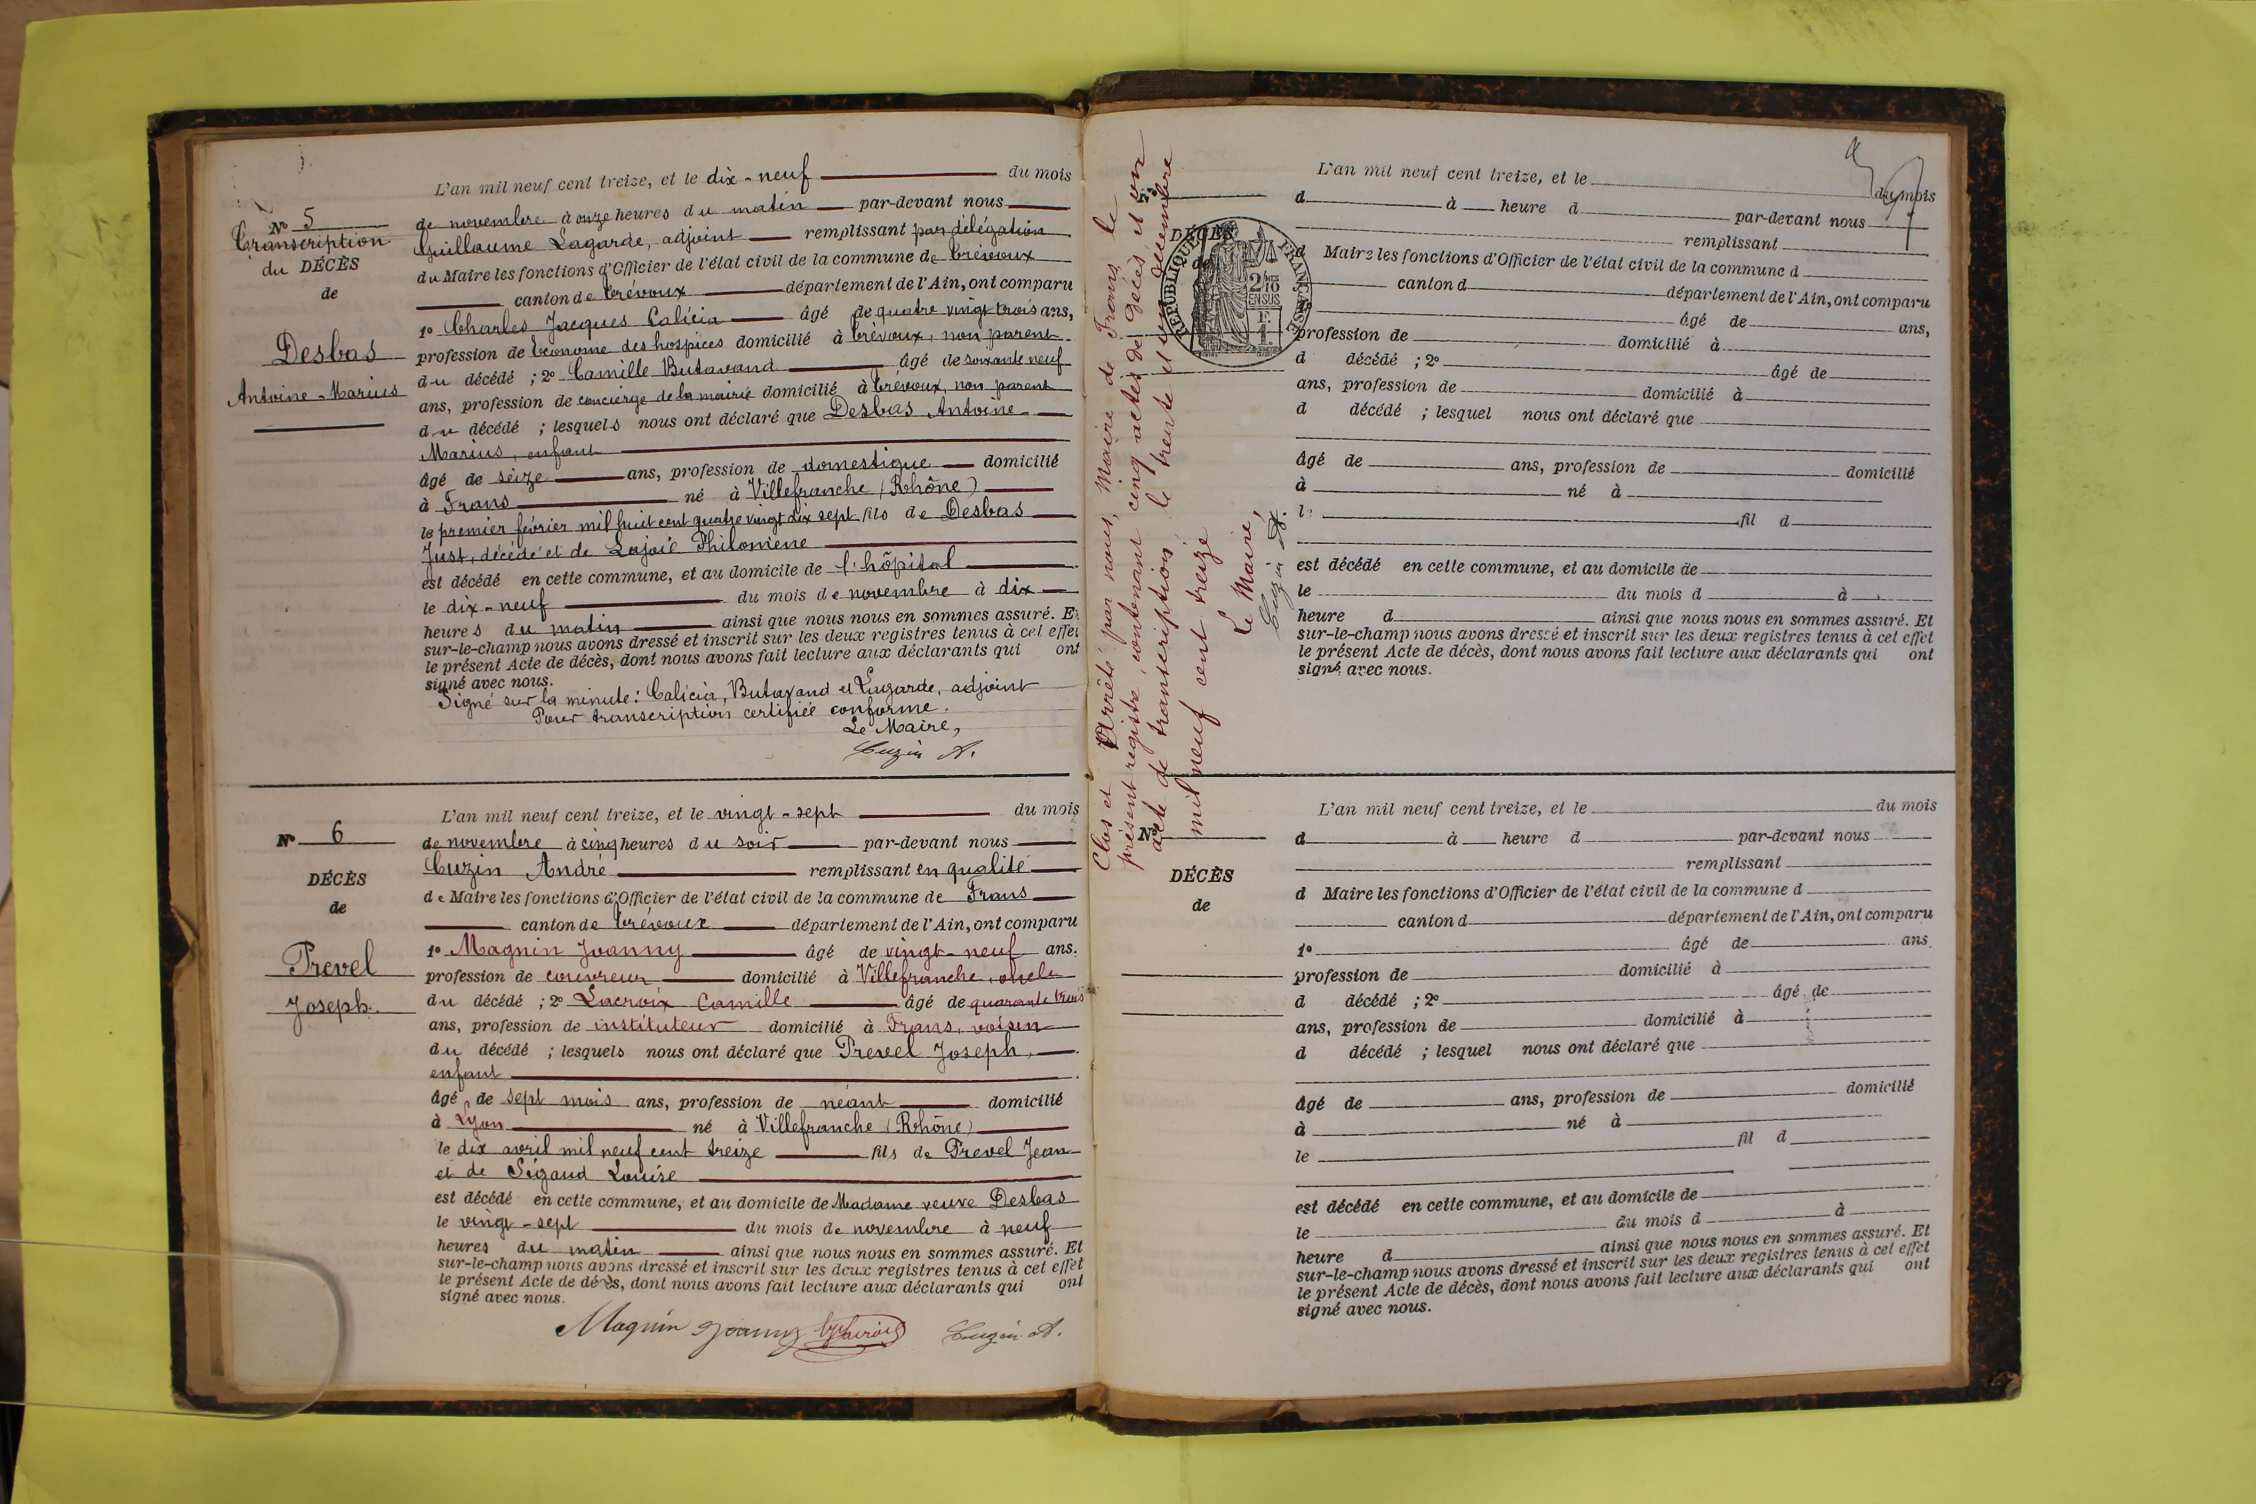 L'an mil neuf cent treize, et le dix-neuf du mois
Nº 5
Transcription
du DÉCÈS
de
Desbas
Antoine-Marius
de novembre à onze heures du matin par-devant nous
Guillaume Lagarde, adjoint remplissant par délégation
du Maire les fonctions d'Officier de l'état civil de la commune de Trévoux
canton de Trévoux département de l'Ain, ont comparu
1º Charles Jacques Calicia âgé de quatre vingt trois ans,
profession de Econome des hospices domicilié à Trévoux, non parent
du décédé ; 2º Camille Butavand âgé de soixante neuf
ans, profession de concierge de la mairie domicilié à Trévoux, non parent
du décédé ; lesquels nous ont déclaré que Desbas Antoine
Marius, enfant
âgé de seize ans, profession de domestique domicilié
à Frans né à Villefranche (Rhône)
le premier février mil huit cent quatre vingt dix sept fils de Desbas
Just, décédé et de Lajoie Philomène
est décédé en cette commune, et au domicile de l'hôpital
le dix-neuf du mois de novembre à dix
heures du matin ainsi que nous nous en sommes assuré. Et
sur-le-champ nous avons dressé et inscrit sur les deux registres tenus à cet effet
le présent Acte de décès, dont nous avons fait lecture aux déclarants qui ont
signé avec nous.
Signé sur la minute : Calicia, Butavand et Lagarde, adjoint
Pour transcription certifiée conforme.
Le Maire,
Cuzin A.
L'an mil neuf cent treize, et le vingt-sept du mois
Nº 6
DÉCÈS
de
Prevel
Joseph
de novembre à cinq heures du soir par-devant nous
Cuzin André remplissant en qualité
de Maire les fonctions d'Officier de l'état civil de la commune de Frans
canton de Trévoux département de l'Ain, ont comparu
1º Magnin Joanny âgé de vingt-neuf ans.
profession de couvreur domicilié à Villefranche, oncle
du décédé ; 2º Lacroix Camille âgé de quarante trois
ans, profession de instituteur domicilié à Frans, voisin
du décédé ; lesquels nous ont déclaré que Prevel Joseph,
enfant
âgé de sept mois ans, profession de néant domicilié
à Lyon né à Villefranche (Rhône)
le dix avril mil neuf cent treize fils de Prevel Jean
et de Sigaud Louise
est décédé en cette commune, et au domicile de Madame veuve Desbas
le vingt-sept du mois de novembre à neuf
heures du matin ainsi que nous nous en sommes assuré. Et
sur-le-champ nous avons dressé et inscrit sur les deux registres tenus à cet effet
le présent Acte de décès, dont nous avons fait lecture aux déclarants qui ont
signé avec nous.
Magnin Joanny Lacroix Cuzin A.
Clos et Arrêté par nous, Maire de Frans le
présent registre, contenant cinq actes de décès et un
acte de transcription, le trente et un décembre
mil neuf cent treize
Le Maire,
Cuzin A.
RÉPUBLIQUE FRANÇAISE
2/10
EN SUS
F.
1.
L'an mil neuf cent treize, et le du mois
Nº
DÉCÈS
de
d à heure d par-devant nous
remplissant
d Maire les fonctions d'Officier de l'état civil de la commune d
canton d département de l'Ain, ont comparu
1º âgé de ans,
profession de domicilié à
d décédé ; 2º âgé de
ans, profession de domicilié à
d décédé ; lesquel nous ont déclaré que
âgé de ans, profession de domicilié
à né à
l fil d
est décédé en cette commune, et au domicile de
le du mois d à
heure d ainsi que nous nous en sommes assuré. Et
sur-le-champ nous avons dressé et inscrit sur les deux registres tenus à cet effet
le présent Acte de décès, dont nous avons fait lecture aux déclarants qui ont
signé avec nous.
L'an mil neuf cent treize, et le du mois
Nº
DÉCÈS
de
d à heure d par-devant nous
remplissant
d Maire les fonctions d'Officier de l'état civil de la commune d
canton d département de l'Ain, ont comparu
1º âgé de ans
profession de domicilié à
d décédé ; 2º âgé de
ans, profession de domicilié à
d décédé ; lesquel nous ont déclaré que
âgé de ans, profession de domicilié
à né à
le fil d
est décédé en cette commune, et au domicile de
le du mois d à
heure d ainsi que nous nous en sommes assuré. Et
sur-le-champ nous avons dressé et inscrit sur les deux registres tenus à cet effet
le présent Acte de décès, dont nous avons fait lecture aux déclarants qui ont
signé avec nous.